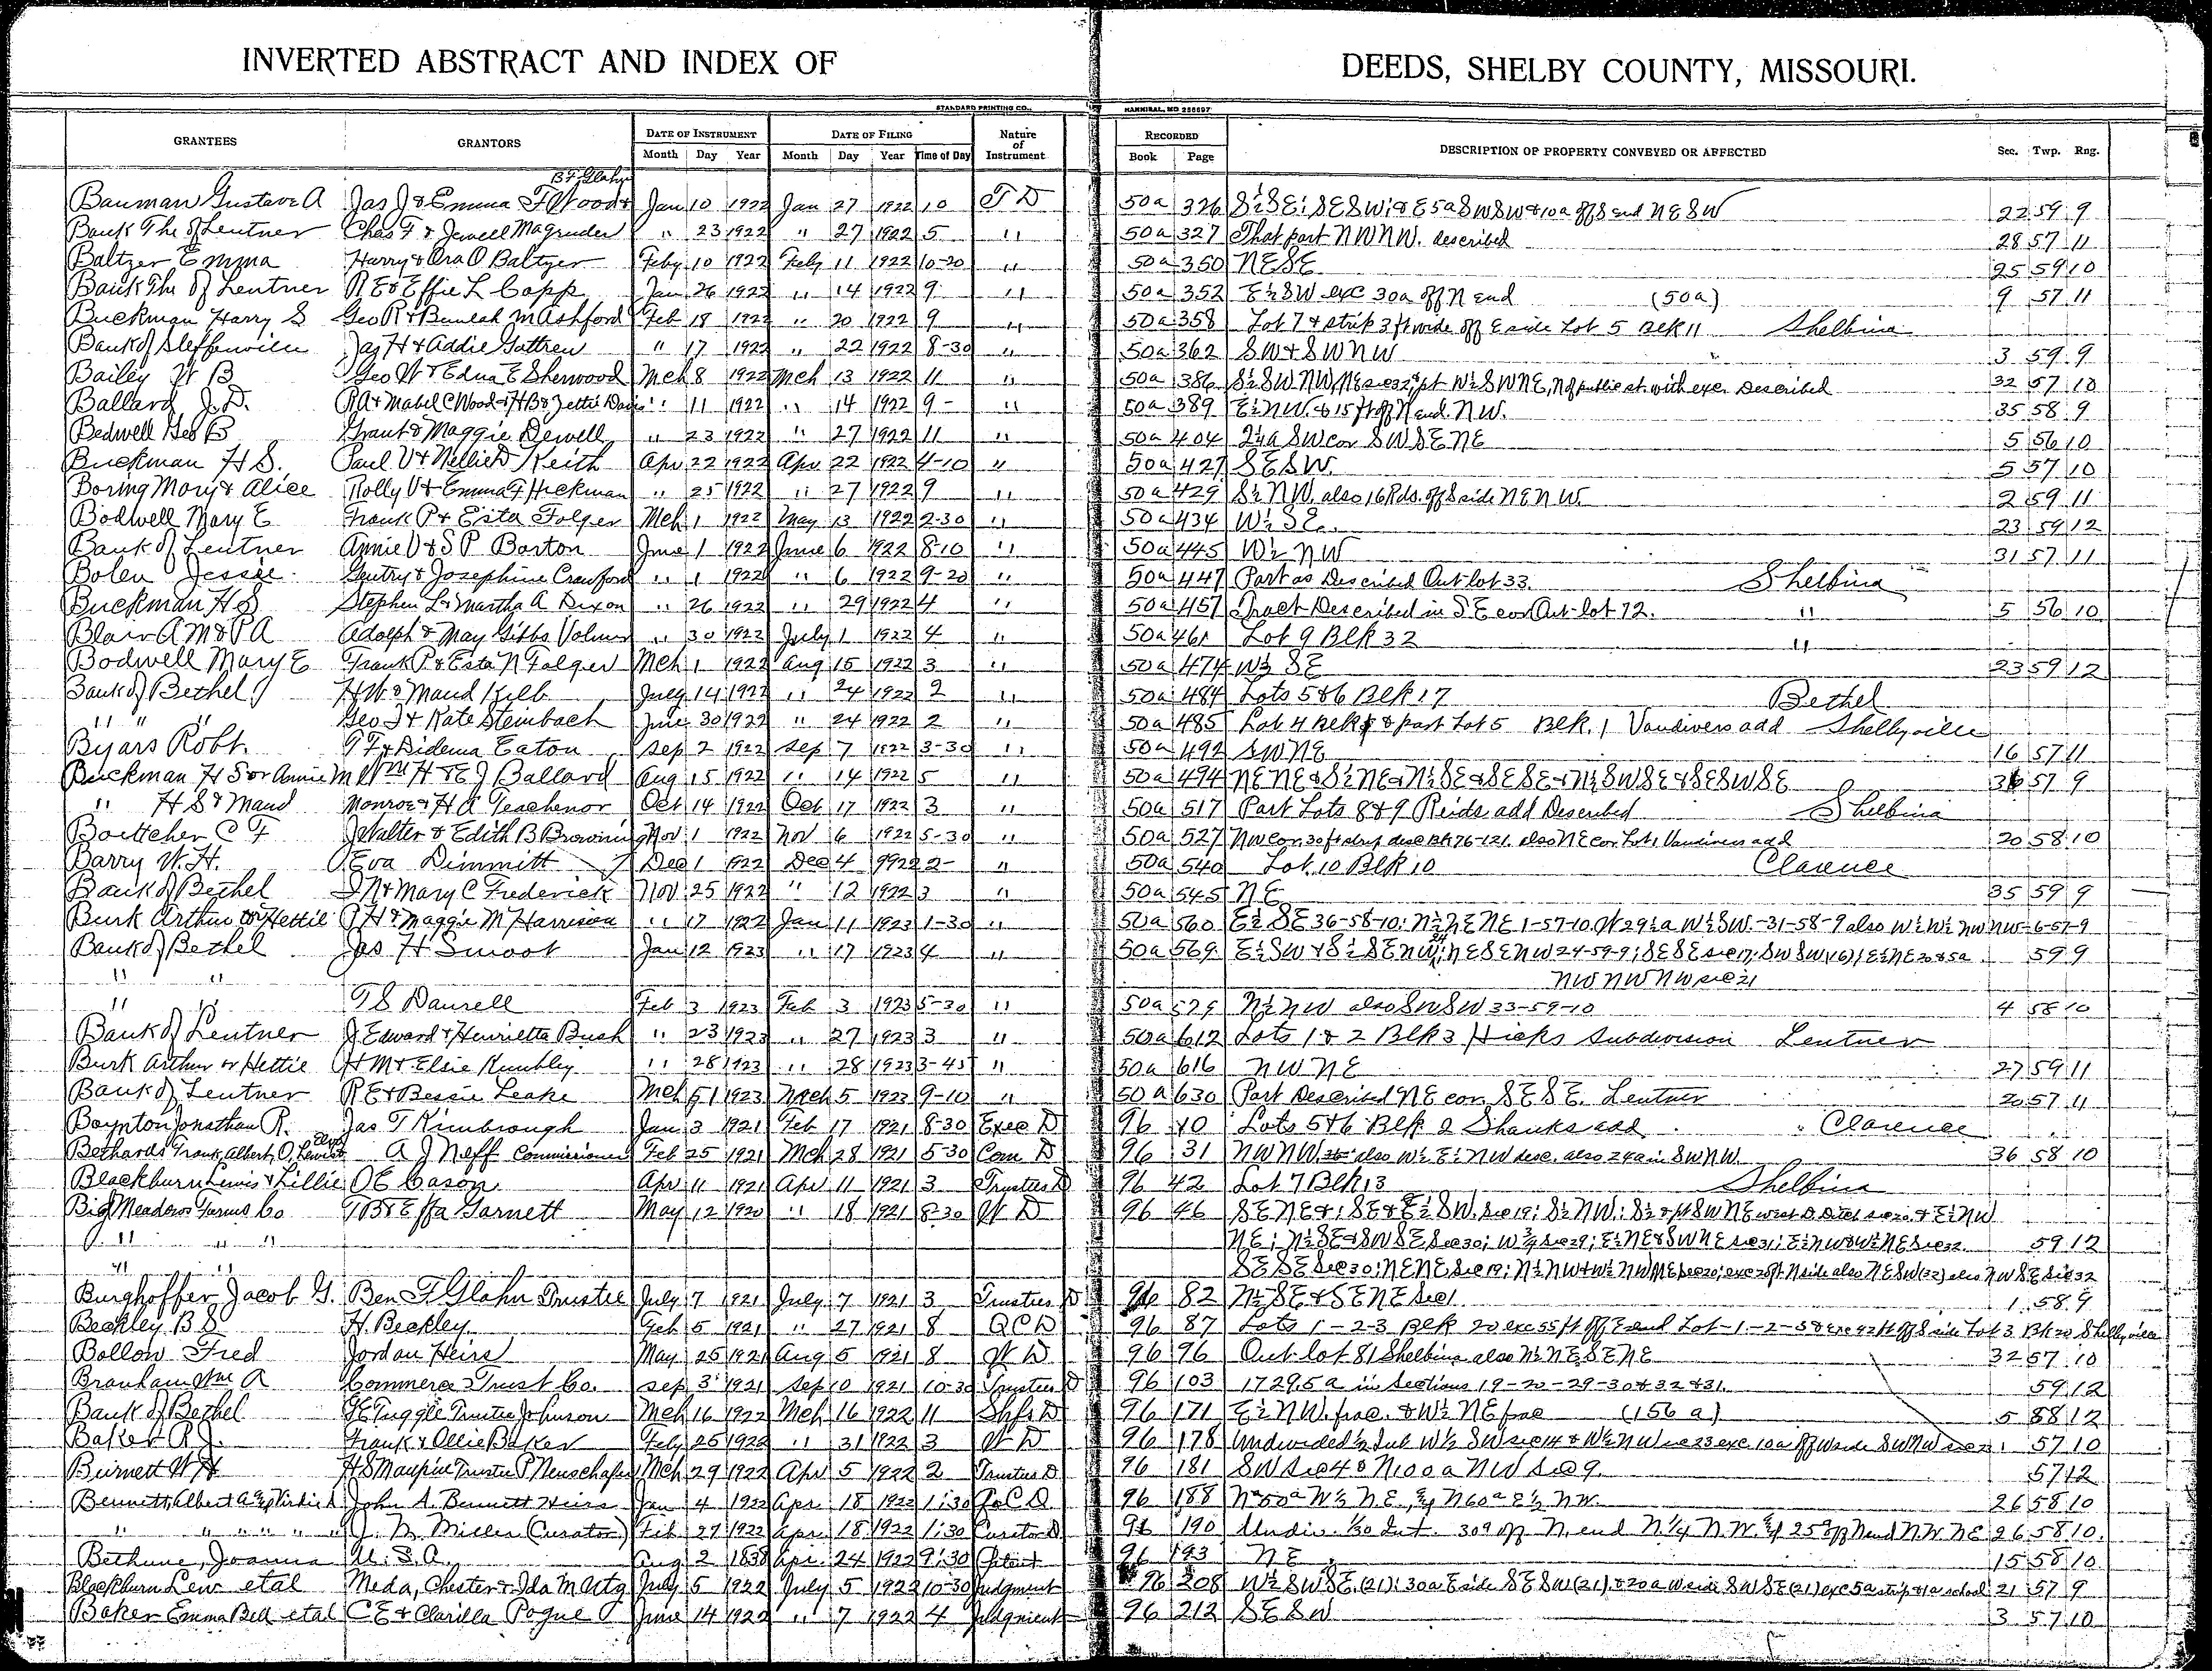 INVERTED ABSTRACT AND INDEX OF DEEDS, SHELBY COUNTY, MISSOURI.
STANDARD PRINTING CO., HANNIBAL, MO 256697
GRANTEES GRANTORS DATE OF INSTRUMENT DATE OF FILING Nature of Instrument RECORDED DESCRIPTION OF PROPERTY CONVEYED OR AFFECTED Sec. Twp. Rng.
Month Day Year Month Day Year Time of Day Book Page
B F Glahn
Bauman Gustave A Jas J & Emma F Wood & Jan 10 1922 Jan 27 1922 10 T D 50a 326 S½SE; SESW; & E 5a SWSW & 10a off S end NESW 22 59 9
Bank The of Lentner Chas F & Jewell Magruder " 23 1922 " 27 1922 5 " 50a 327 That part NWNW. described 28 57 11
Baltzer Emma Harry & Ora O Baltzer Feby 10 1922 Feby 11 1922 10-20 " 50a 350 NESE 25 59 10
Bank The of Lentner R E & Effie L Capp Jan 26 1922 " 14 1922 9 " 50a 352 E½SW exc 30a off N end (50a) 9 57 11
Buckman Harry S Geo R & Beulah M Ashford Feb 18 1922 " 20 1922 9 " 50a 358 Lot 7 & strip 3 ft wide off E side Lot 5 Blk 11 Shelbina
Bank of Steffenville Jas H & Addie Gattren " 17 1922 " 22 1922 8-30 " 50a 362 SW & SWNW 3 59 9
Bailey W B Geo W & Edna E Sherwood Mch 8 1922 Mch 13 1922 11 " 50a 386 S½SWNW, NE sec 32, pt W½SWNE, N of public st. with exc. Described 32 57 10
Ballard J.D. R A & Mabel C Wood & H B & Zettie Davis " 11 1922 " 14 1922 9- " 50a 389 E½NW. & 15 ft off N end. NW. 35 58 9
Bedwell Geo B Grant & Maggie Dewell " 23 1922 " 27 1922 11 " 50a 404 2½a SW cor SWSENE 5 56 10
Buckman H S. Paul V & Nellie D Keith Apr 22 1922 Apr 22 1922 4-10 " 50a 427 SESW. 5 57 10
Boring Mary & Alice Rolly V & Emma F Hickman " 25 1922 " 27 1922 9 " 50a 429 S½NW. also 16 Rds. off S side NENW. 2 59 11
Bodwell Mary E Frank P & Esta Folger Mch 1 1922 May 13 1922 2-30 " 50a 434 W½SE. 23 59 12
Bank of Lentner Annie V & S P Barton June 1 1922 June 6 1922 8-10 " 50a 445 W½NW 31 57 11
Bolen Jessie Gentry & Josephine Crawford " 1 1922 " 6 1922 9-20 " 50a 447 Part as Described Out-lot 33. Shelbina
Buckman H S Stephen L & Martha A Dixon " 26 1922 " 29 1922 4 " 50a 457 Tract Described in SE cor Out-lot 72. " 5 56 10
Blair A M & P A Adolph & May Gibbs Volmer " 30 1922 July 1 1922 4 " 50a 461 Lot 9 Blk 32 "
Bodwell Mary E Frank P & Esta N Folger Mch 1 1922 Aug 15 1922 3 " 50a 474 W½ SE 23 59 12
Bank of Bethel H W & Maud Kelb July 14 1922 " 24 1922 2 " 50a 484 Lots 5&6 Blk 17 Bethel
" " " Geo J & Kate Steinbach June 30 1922 " 24 1922 2 " 50a 485 Lot 4 & part Lot 5 Blk. 1 Vandivers add Shelbyville
Byars Robt. T F & Didema Eaton Sep 2 1922 Sep 7 1922 3-30 " 50a 492 SWNE 16 57 11
Buckman H S or Annie M Wm H & E J Ballard Aug 15 1922 " 14 1922 5 " 50a 494 NENE & S½NE & N½SE & SESE & N½SWSE & SESWSE 36 57 9
" H S & Maud Monroe & H A Teachenor Oct 14 1922 Oct 17 1922 3 " 50a 517 Part Lots 8&9 Reids add Described Shelbina
Boettcher C F J Walter & Edith B Browning Nov 1 1922 Nov 6 1922 5-30 " 50a 527 NW cor. 30 ft strip desc Bk 76-121. also NE cor. Lot 1 Vandivers add 20 58 10
Barry W. H. Eva Dimmitt Dec 1 1922 Dec 4 9922 2- " 50a 540 Lot 10 Blk 10 Clarence
Bank of Bethel I N & Mary C Frederick Nov 25 1922 " 12 1922 3 " 50a 545 NE 35 59 9
Burk Arthur or Hettie P H & Maggie M Harrison " 17 1922 Jan 11 1923 1-30 " 50a 560 E½SE 36-58-10; N½NENE 1-57-10. W 29½a W½SW.-31-58-9 also W½W½NWNW-6-57-9
Bank of Bethel Jas H Smoot Jan 12 1923 " 17 1923 4 " 50a 569 E½SW & S½SENW; NESENW 24-59-9; SESE sec 17; SWSW(16); E½NE 20 & 5a 59 9
" " NWNWNW sec 21
" " T S Dausell Feb 3 1923 Feb 3 1923 5-30 " 50a 579 N½NW also SWSW 33-59-10 4 58 10
Bank of Lentner J Edward & Henrietta Bush " 23 1923 " 27 1923 3 " 50a 612 Lots 1 & 2 Blk 3 Hicks Subdivision Lentner
Burk Arthur or Hettie H M & Elsie Kumbley " 28 1923 " 28 1923 3-45 " 50a 616 NWNE 27 59 11
Bank of Lentner R E & Bessie Leake Mch 51 1923 Mch 5 1923 9-10 " 50a 630 Part Described NE cor. SESE. Lentner 20 57 11
Boynton Jonathan R. Jas T Kimbrough Jan 3 1921 Feb 17 1921 8-30 Exec D 96 10 Lots 5&6 Blk 2 Shanks add Clarence
Bethards Frank, Albert, O, Lewis & Elva A J Neff Commissioner Feb 25 1921 Mch 28 1921 5-30 Com D 96 31 NWNW. also W½E½NW desc. also 24a in SWNW. 36 58 10
Blackburn Lewis & Lillie O E Cason Apr 11 1921 Apr 11 1921 3 Trustees D 96 42 Lot 7 Blk 13 Shelbina
Big Meadows Farms Co T B & Effa Garnett May 12 1920 " 18 1921 8-30 W D 96 46 SENE & ; SE & E½SW. Sec 19; S½NW.; S½ & pt SWNE west D Ditch sec 20. & E½NW
" " " NE; N½SE & SWSE Sec 30; W ¾ Sec 29; E½NE & SWNE sec 31; E½NW & W½NE Sec 32. 59 12
" " SESE Sec 30; NENE Sec 19; N½NW & W½NWNE Sec 20; exc 20 ft N side also NESW(32) also NWSE Sec 32
Burghoffer Jacob G. Ben F Glahn Trustee July 7 1921 July 7 1921 3 Trustees D 96 82 N½SE & SENE Sec 1 1 58 9
Beckley B S H. Beckley Feb 5 1921 " 27 1921 8 Q C D 96 87 Lots 1-2-3 Blk 20 exc 55 ft off E end Lot-1-2-3 & exc 42 ft off S side Lot 3 Blk 20 Shelbyville
Bollow Fred Jordan Heirs May 25 1921 Aug 5 1921 8 W D 96 96 Out lot 81 Shelbina also N½NESENE 32 57 10
Branham Wm A Commerce Trust Co. Sep 3 1921 Sep 10 1921 10-30 Trustees D 96 103 1729.5 a in Sections 19-20-29-30 & 32 & 31. 59 12
Bank of Bethel F E Tuggle Trustee Johnson Mch 16 1922 Mch 16 1922 11 Shfs D 96 171 E½NW. frac. & W½NE frac (156 a) 5 58 12
Baker R J. Frank & Ollie Baker Feby 25 1922 " 31 1922 3 W D 96 178 Undivided ½ Int W½ SW sec 14 & W½NW sec 23 exc 10a off W side SWNW sec 23 57 10
Burnett W H H S Maupin Trustee P Neuschafer Mch 29 1922 Apr 5 1922 2 Trustees D 96 181 SW Sec 4 & N 100 a NW Sec 9. 57 12
Bennett, Albert A & Virdie A John A. Bennett Heirs Jan 4 1922 Apr. 18 1922 1:30 Q C D. 96 188 N 50a W½ NE., & N 60a E½ NW. 26 58 10
" " " " " J. M. Miller (Curator) Feb 27 1922 Apr. 18 1922 1:30 Curator D 96 190 Undiv. 1/30 Int. 30a off N. end N¼ NW. & 25a off N end NW NE 26 58 10.
Bethune, Joanna U. S. A. Aug 2 1838 Apr. 24 1922 9:30 Patent 96 193 NE 15 58 10
Blackburn Lew etal Meda, Chester & Ida M Utz July 5 1922 July 5 1922 10-30 Judgment 96 208 W½SWSE.(21); 30a E side SESW(21). & 20a W side SWSE(21) exc 5a strip & 1a school 21 57 9
Baker Emma Bell etal C E & Clarilla Pogue June 14 1922 " 7 1922 4 Judgment 96 212 SESW 3 57 10